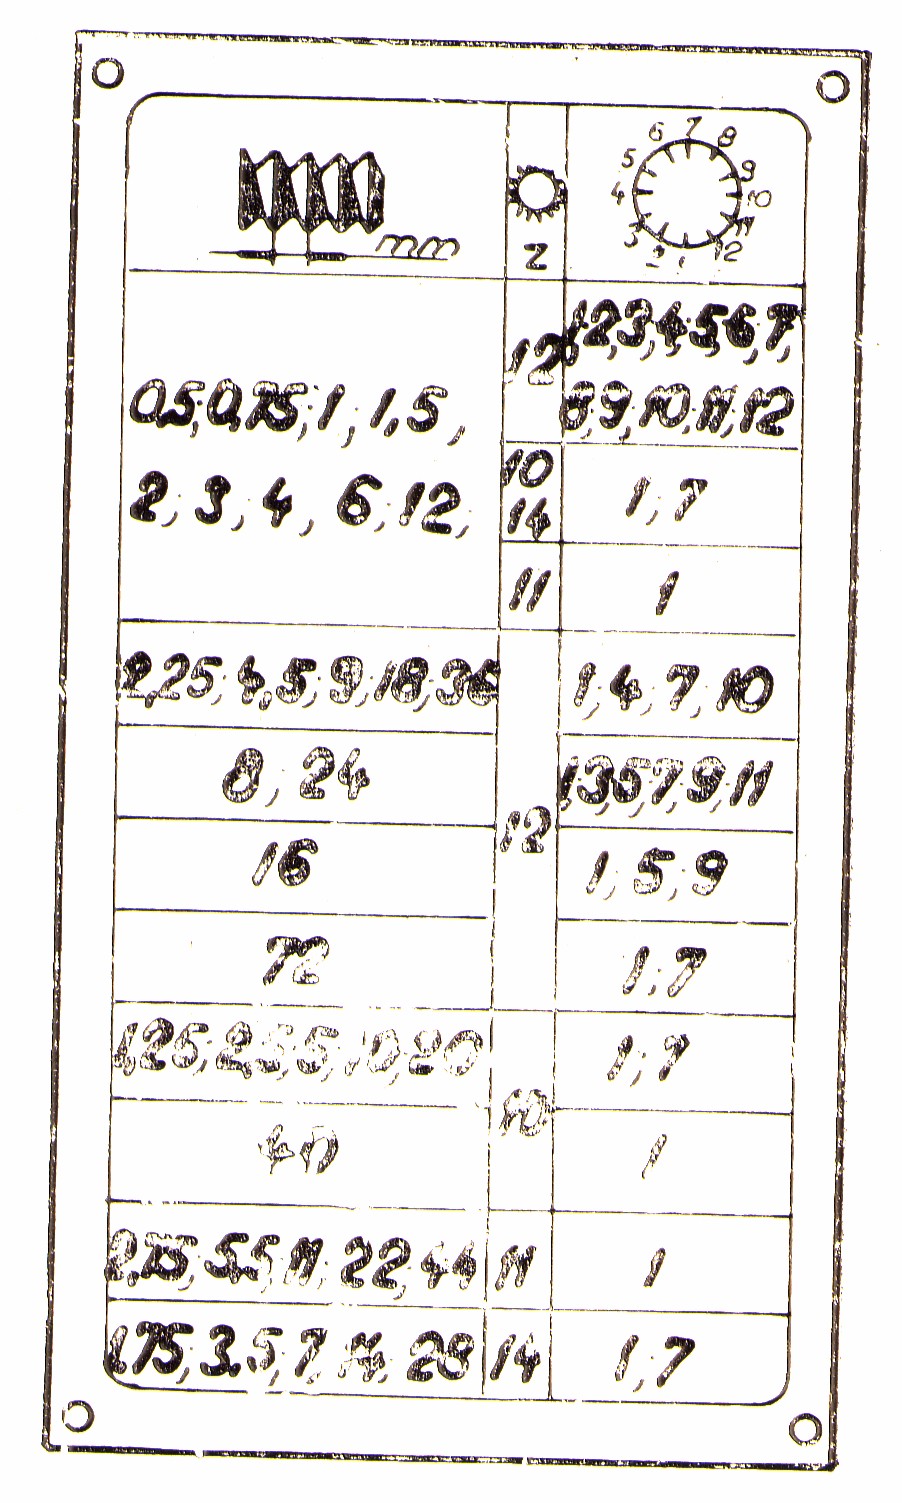 6 7 8
5 9
4 10
3 11
2 1 12
mm
Z
1,2,3,4,5,6,7,
12
8,9,10,11,12
0,5;0,75;1;1,5;
2; 3; 4; 6;12;
10
14
1;7
11
1
2,25;4,5;9;18;36
1;4;7;10
8; 24
1,3,5,7,9,11
12
16
1;5;9
72
1;7
1,25;2,5;5;10;20
1;7
10
40
1
2,75;5,5;11;22;44
11
1
1,75;3,5;7;14;28
14
1;7